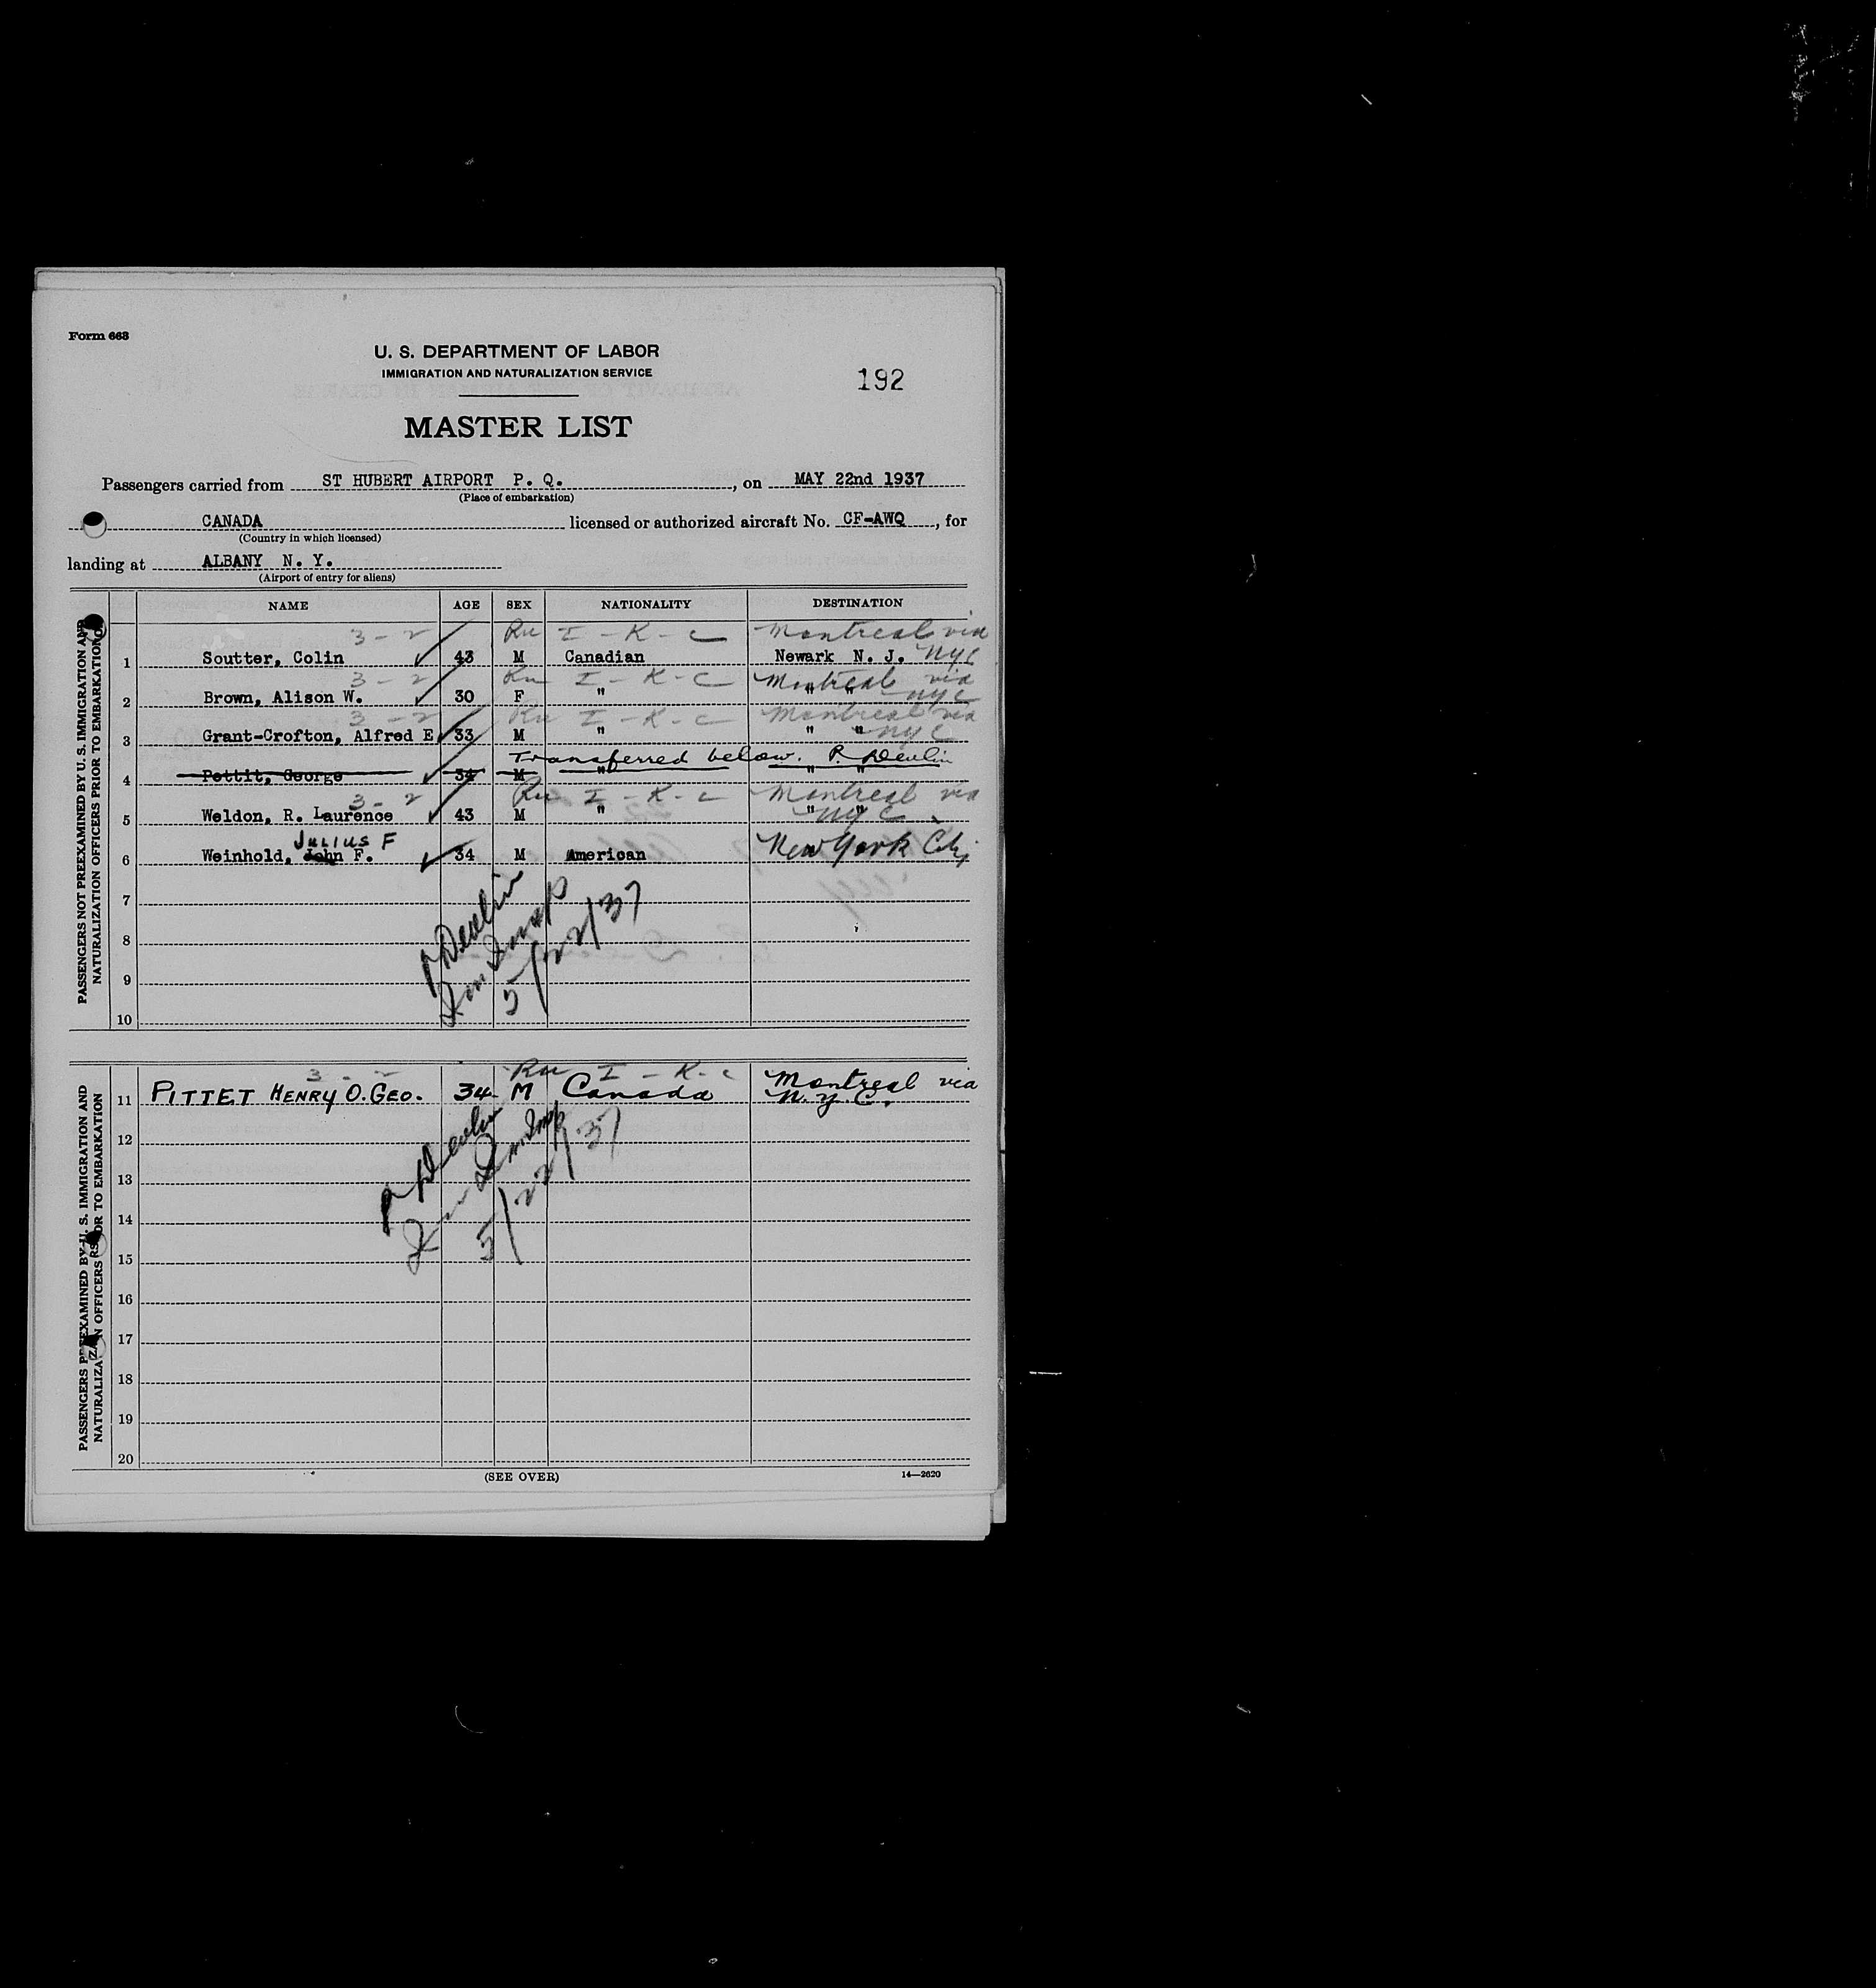 Form 663
U. S. DEPARTMENT OF LABOR
IMMIGRATION AND NATURALIZATION SERVICE
192
MASTER LIST
Passengers carried from ST HUBERT AIRPORT P. Q. , on MAY 22nd 1937
(Place of embarkation)
CANADA licensed or authorized aircraft No. CF-AWQ , for
(Country in which licensed)
landing at ALBANY N. Y.
(Airport of entry for aliens)
PASSENGERS NOT PREEXAMINED BY U. S. IMMIGRATION AND
NATURALIZATION OFFICERS PRIOR TO EMBARKATION
NAME AGE SEX NATIONALITY DESTINATION
3 - 2 I - K - C Montreal via
1 Soutter, Colin 43 M Canadian Newark N. J. NYC
3 - 2 I - K - C Montreal via
2 Brown, Alison W. 30 F " " " NYC
3 - 2 I - K - C Montreal via
3 Grant-Crofton, Alfred E 33 M " " " NYC
Transferred below. P. Devlin
4 Pettit, George 34 M " " "
3 - 2 I - K - C Montreal via
5 Weldon, R. Laurence 43 M " " " NYC
JULIUS F
6 Weinhold, John F. 34 M American New York City
7
8
9
10
P Devlin
Imm Insp
5/22/37
PASSENGERS PREEXAMINED BY U. S. IMMIGRATION AND
NATURALIZATION OFFICERS PRIOR TO EMBARKATION
3 - 2 I - K - C Montreal via
11 PITTET HENRY O. GEO. 34 M Canada N. Y. C.
12
13
14
15
16
17
18
19
20
P Devlin
Imm Insp
5/22/37
(SEE OVER)
14—2620